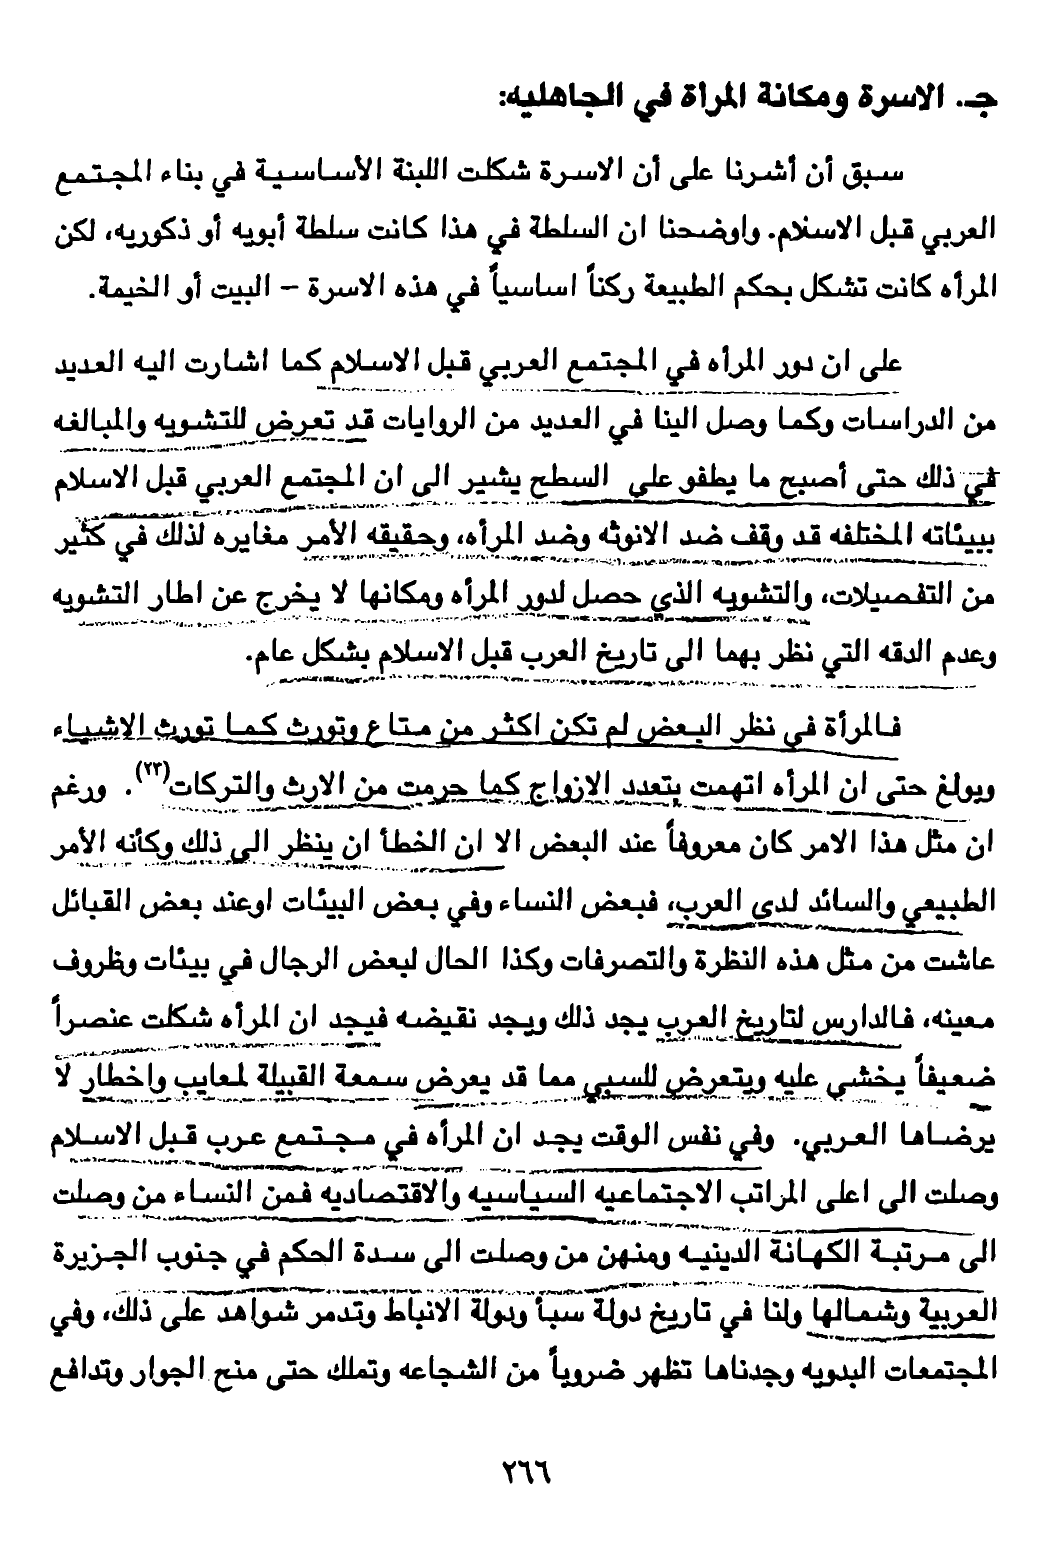 جـ. الاسرة ومكانة المرأة في الجاهليه:
سبق أن أشرنا على أن الاسرة شكلت اللبنة الأساسية في بناء المجتمع
العربي قبل الاسلام. واوضحنا ان السلطة في هذا كانت سلطة أبويه أو ذكوريه، لكن
المرأه كانت تشكل بحكم الطبيعة ركناً اساسياً في هذه الاسرة – البيت أو الخيمة.
على ان دور المرأه في المجتمع العربي قبل الاسلام كما اشارت اليه العديد
من الدراسات وكما وصل الينا في العديد من الروايات قد تعرض للتشويه والمبالغه
في ذلك حتى أصبح ما يطفو على السطح يشير الى ان المجتمع العربي قبل الاسلام
ببيئاته المختلفه قد وقف ضد الانوثه وضد المرأه، وحقيقه الأمر مغايره لذلك في كثير
من التفصيلات، والتشويه الذي حصل لدور المرأه ومكانها لا يخرج عن اطار التشويه
وعدم الدقه التي نظر بهما الى تاريخ العرب قبل الاسلام بشكل عام.
فالمرأة في نظر البعض لم تكن اكثر من متاع وتورث كما تورث الاشياء
وبولغ حتى ان المرأه اتهمت بتعدد الازواج كما حرمت من الارث والتركات(٢٣). ورغم
ان مثل هذا الامر كان معروفاً عند البعض الا ان الخطأ ان ينظر الى ذلك وكأنه الأمر
الطبيعي والسائد لدى العرب، فبعض النساء وفي بعض البيئات اوعند بعض القبائل
عاشت من مثل هذه النظرة والتصرفات وكذا الحال لبعض الرجال في بيئات وظروف
معينه، فالدارس لتاريخ العرب يجد ذلك ويجد نقيضه فيجد ان المرأه شكلت عنصراً
ضعيفاً يخشى عليه ويتعرض للسبي مما قد يعرض سمعة القبيلة لمعايب واخطار لا
يرضاها العربي. وفي نفس الوقت يجد ان المرأه في مجتمع عرب قبل الاسلام
وصلت الى اعلى المراتب الاجتماعيه السياسيه والاقتصاديه فمن النساء من وصلت
الى مرتبة الكهانة الدينيه ومنهن من وصلت الى سدة الحكم في جنوب الجزيرة
العربية وشمالها ولنا في تاريخ دولة سبأ ودولة الانباط وتدمر شواهد على ذلك، وفي
المجتمعات البدويه وجدناها تظهر ضروباً من الشجاعه وتملك حتى منح الجوار وتدافع
٢٦٦